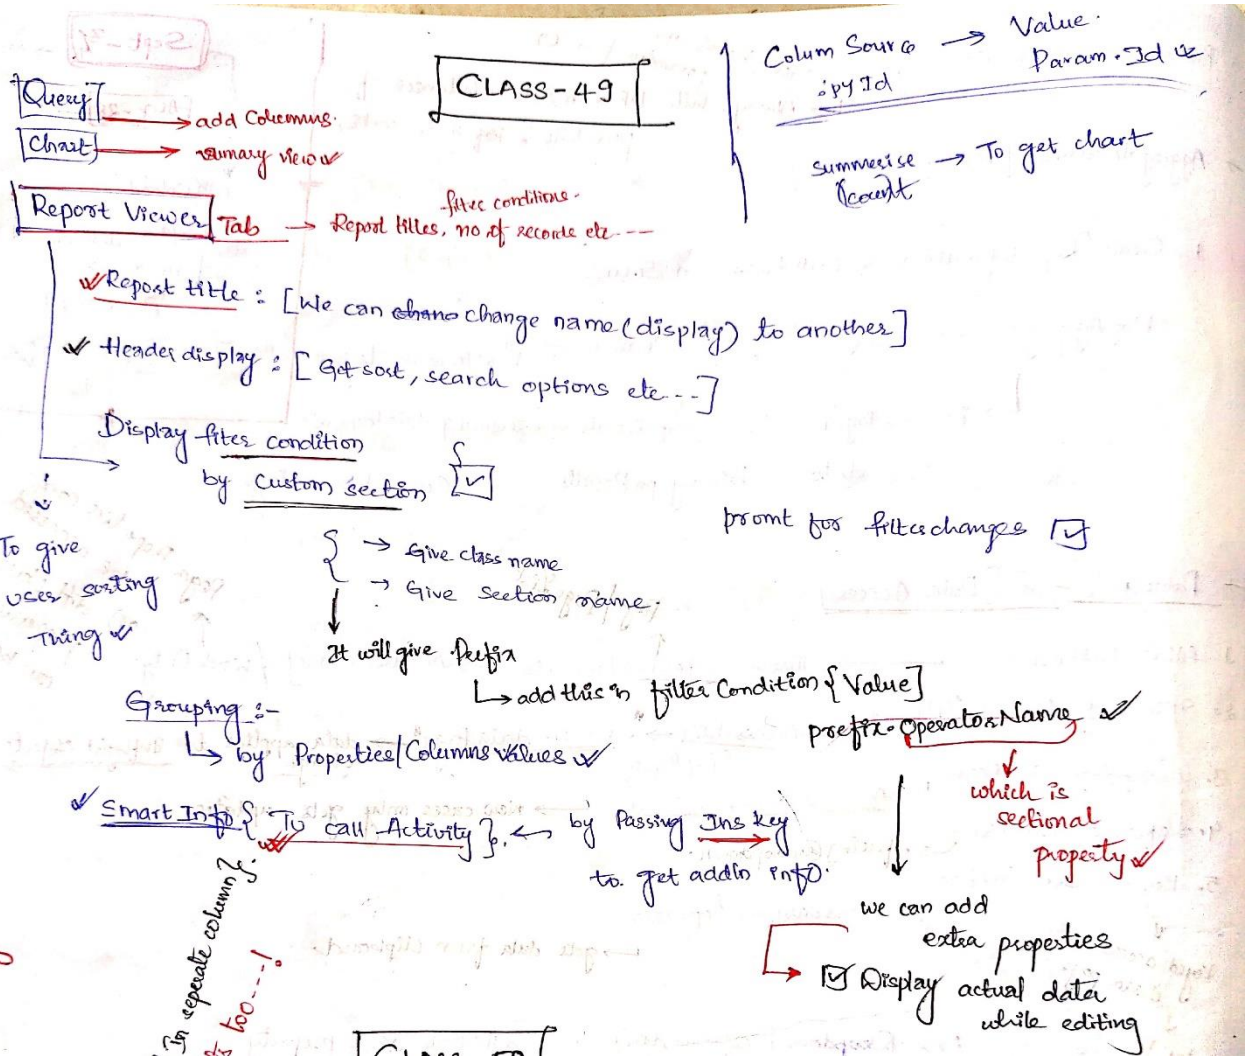 CLASS-49
Query → add Columns.
Chart → summary view
Report Viewer Tab → Report titles, no of records etc ---
filter conditions.
Colum Source → Value.
.pyId Param.Id
summerise → To get chart
count
Report title : [We can change name (display) to another]
Header display : [Get sort, search options etc---]
Display filter condition
by custom section
promt for filter changes
To give
user sorting
Thing
→ Give class name
→ Give section name.
It will give Prefix
add this in filter Condition {Value]
prefix.OperatorName
which is
sectional
property
Grouping :-
by Properties/Columns values
Smart Info { To call Activity }. ← by Passing Ins key
to get addln info.
we can add
extra properties
Display actual data
while editing
In seperate column}.
too----!